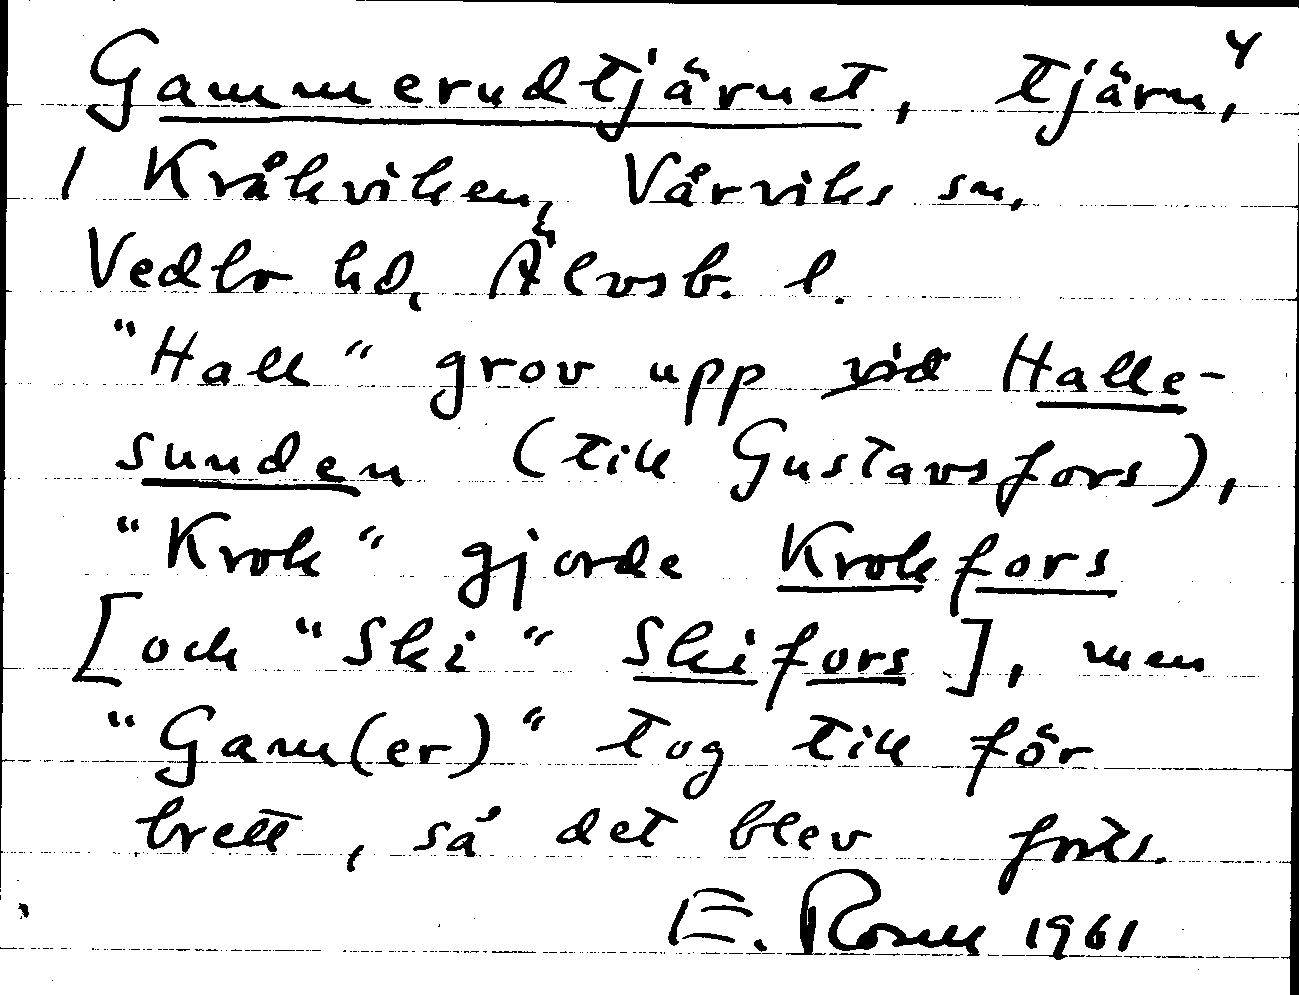 Gammerudtjärnet, tjärn, 4
1 Kråkviken, Vårviks sn,
Vedbo hd, Älvsb. l.
"Hall" grov upp vid Halle-
sunden (till Gustavsfors),
"Krok" gjorde Krokfors
[och "Ski" Skifors], men
"Gam(er)" tog till för
brett, så det blev forts.
E. 1961